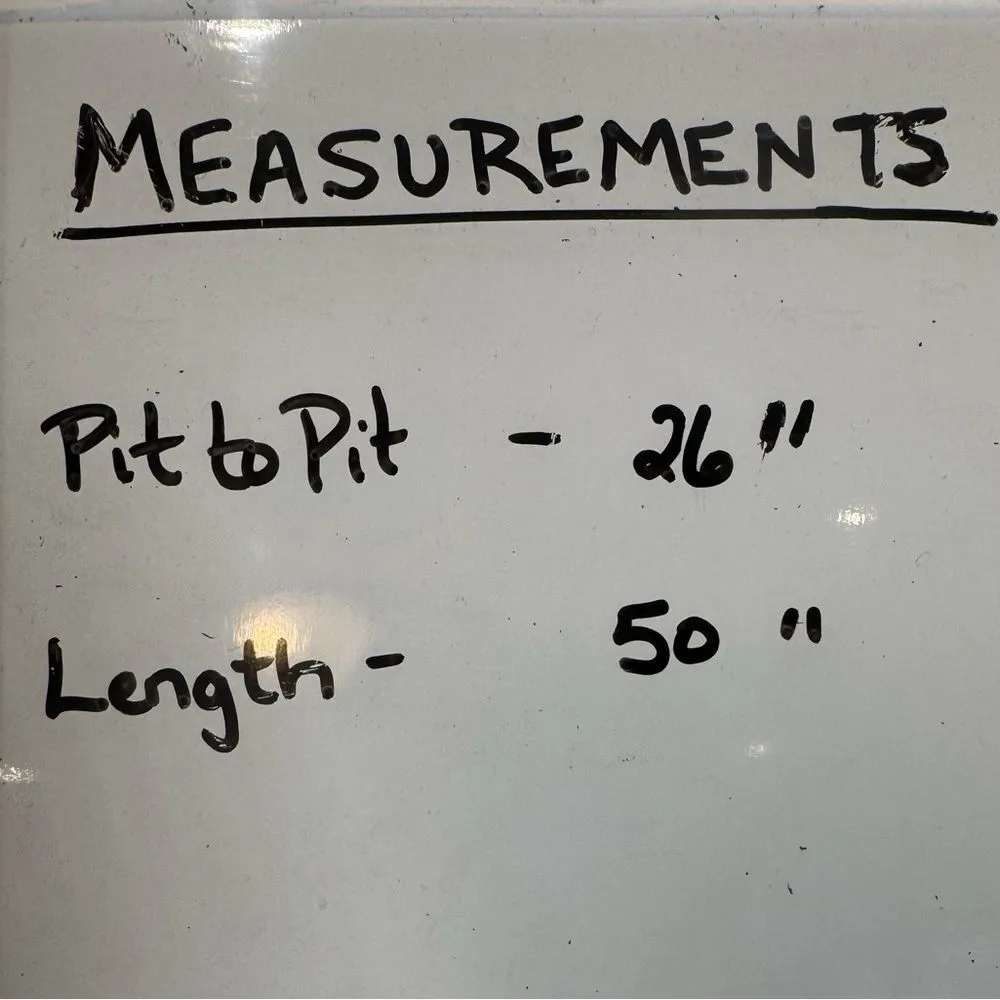 MEASUREMENTS
Pit to Pit - 26"
Length - 50"